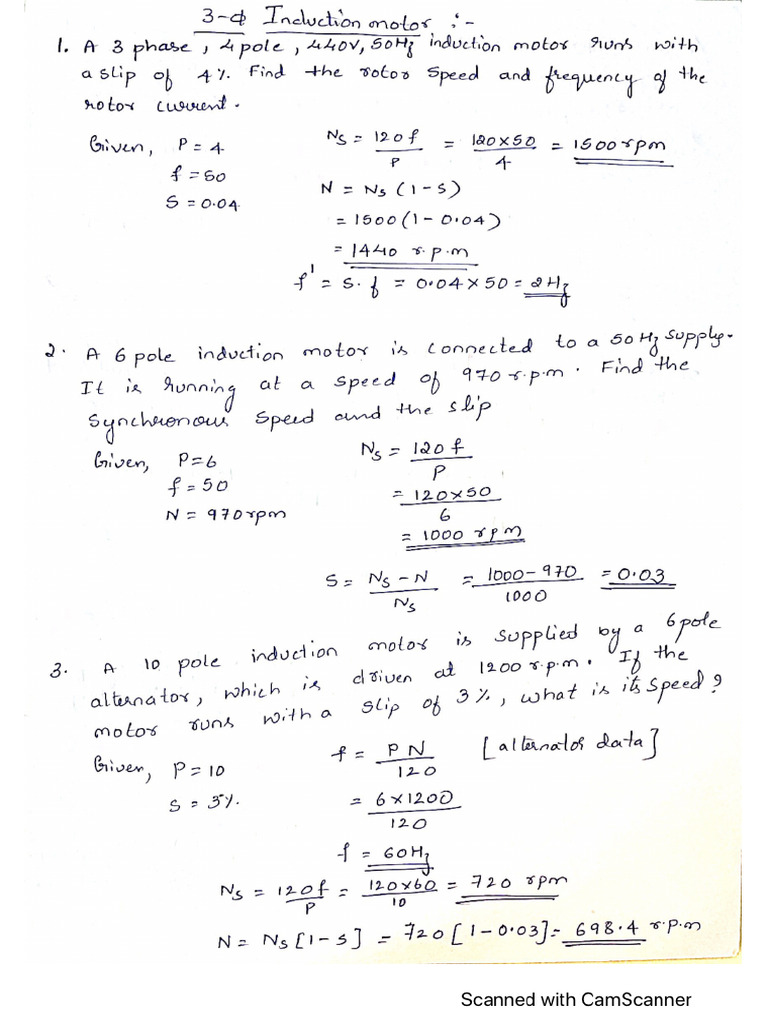 3-ɸ Induction motor :-
1. A 3 phase, 4 pole, 440V, 50Hz induction motor runs with
a slip of 4%. Find the rotor speed and frequency of the
rotor current.
Given, P = 4
f = 50
S = 0.04
Ns = 120f/P = 120×50/4 = 1500 rpm
N = Ns (1-s)
= 1500 (1-0.04)
= 1440 r.p.m
f' = s.f = 0.04 × 50 = 2Hz
2. A 6 pole induction motor is connected to a 50Hz supply.
It is running at a speed of 970 r.p.m. Find the
synchronous speed and the slip
Given, P=6
f = 50
N = 970 rpm
Ns = 120f/P
= 120×50/6
= 1000 rpm
S = Ns - N/Ns = 1000-970/1000 = 0.03
3. A 10 pole induction motor is supplied by a 6 pole
alternator, which is driven at 1200 r.p.m. If the
motor runs with a slip of 3%, what is its speed?
Given, P = 10
S = 3%.
f = PN/120 [alternator data]
= 6×1200/120
f = 60Hz
Ns = 120f/P = 120×60/10 = 720 rpm
N = Ns [1-s] = 720 [1-0.03] = 698.4 r.p.m
Scanned with CamScanner